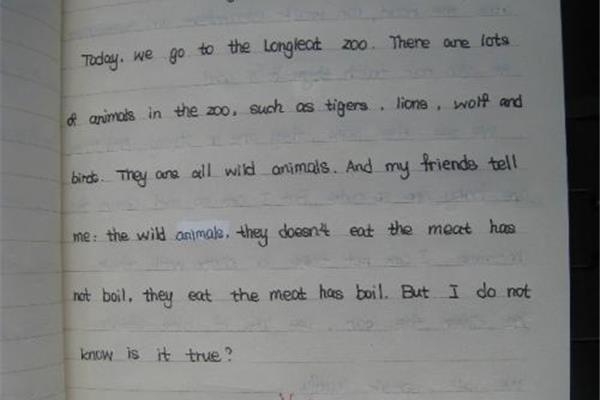 Today, we go to the Longleat zoo. There are lots
of animals in the zoo, such as tigers, lions, wolf and
birds. They are all wild animals. And my friends tell
me: the wild animals, they doesn't eat the meat has
not boil, they eat the meat has boil. But I do not
know is it true?